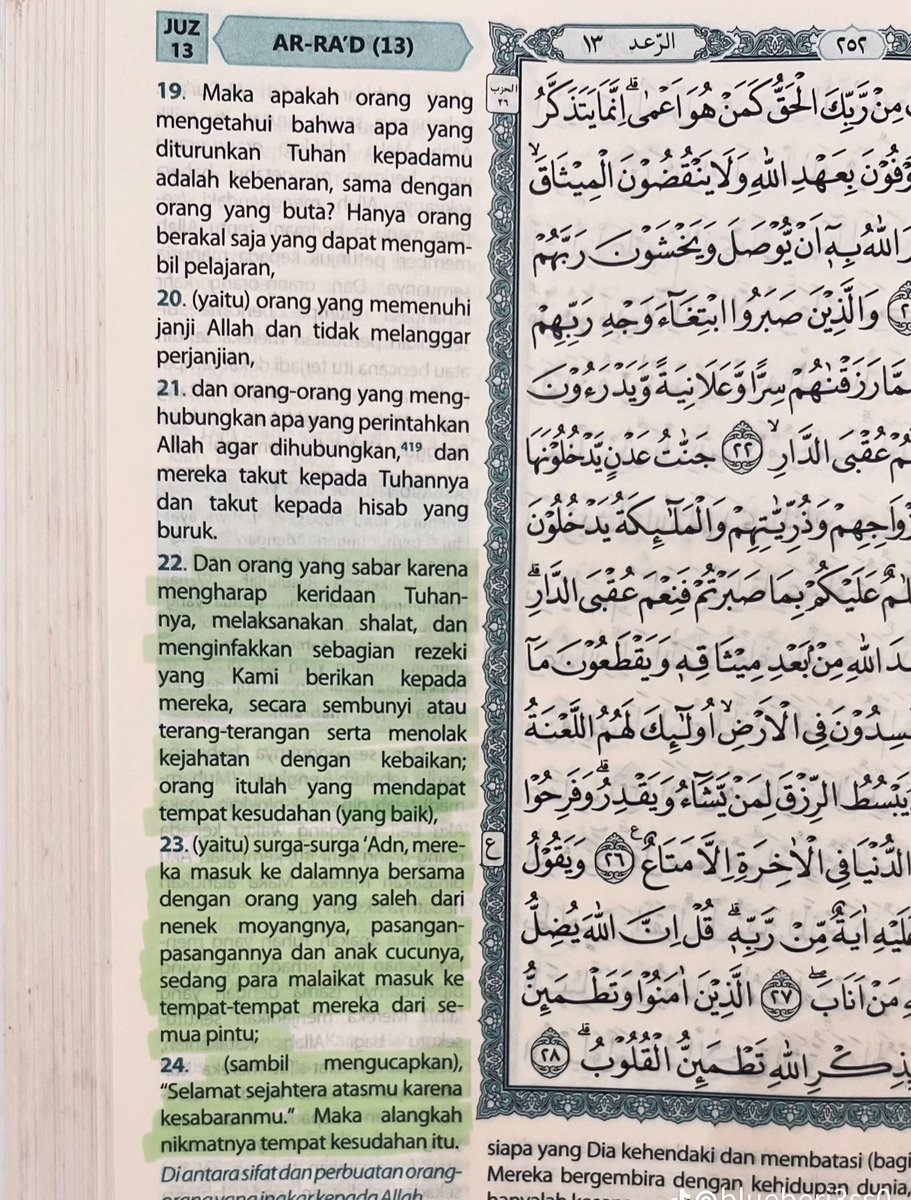 JUZ
13
AR-RA'D (13)
19. Maka apakah orang yang
mengetahui bahwa apa yang
diturunkan Tuhan kepadamu
adalah kebenaran, sama dengan
orang yang buta? Hanya orang
berakal saja yang dapat mengam-
bil pelajaran,
20. (yaitu) orang yang memenuhi
janji Allah dan tidak melanggar
perjanjian,
21. dan orang-orang yang meng-
hubungkan apa yang perintahkan
Allah agar dihubungkan,⁴¹⁹ dan
mereka takut kepada Tuhannya
dan takut kepada hisab yang
buruk.
22. Dan orang yang sabar karena
mengharap keridaan Tuhan-
nya, melaksanakan shalat, dan
menginfakkan sebagian rezeki
yang Kami berikan kepada
mereka, secara sembunyi atau
terang-terangan serta menolak
kejahatan dengan kebaikan;
orang itulah yang mendapat
tempat kesudahan (yang baik),
23. (yaitu) surga-surga 'Adn, mere-
ka masuk ke dalamnya bersama
dengan orang yang saleh dari
nenek moyangnya, pasangan-
pasangannya dan anak cucunya,
sedang para malaikat masuk ke
tempat-tempat mereka dari se-
mua pintu;
24. (sambil mengucapkan),
“Selamat sejahtera atasmu karena
kesabaranmu.” Maka alangkah
nikmatnya tempat kesudahan itu.
Di antara sifat dan perbuatan orang-
orang yang ingkar kepada Allah
الرّعد ١٣
٢٥٢
الحزب
٢٦
مِنْ رَّبِّكَ الْحَقُّ كَمَنْ هُوَ اَعْمٰىۗ اِنَّمَا يَتَذَكَّرُ
بِعَهْدِ اللّٰهِ وَلَا يَنْقُضُوْنَ الْمِيْثَاقَۙ
اللّٰهُ بِهٖٓ اَنْ يُّوْصَلَ وَيَخْشَوْنَ رَبَّهُمْ
وَالَّذِيْنَ صَبَرُوا ابْتِغَاۤءَ وَجْهِ رَبِّهِمْ
رَزَقْنٰهُمْ سِرًّا وَّعَلَانِيَةً وَّيَدْرَءُوْنَ
عُقْبَى الدَّارِۙ ٢٢ جَنّٰتُ عَدْنٍ يَّدْخُلُوْنَهَا
وَذُرِّيّٰتِهِمْ وَالْمَلٰۤىِٕكَةُ يَدْخُلُوْنَ
عَلَيْكُمْ بِمَا صَبَرْتُمْ فَنِعْمَ عُقْبَى الدَّارِۗ
اللّٰهِ مِنْۢ بَعْدِ مِيْثَاقِهٖ وَيَقْطَعُوْنَ مَآ
فِى الْاَرْضِۙ اُولٰۤىِٕكَ لَهُمُ اللَّعْنَةُ
يَبْسُطُ الرِّزْقَ لِمَنْ يَّشَاۤءُ وَيَقْدِرُۗ وَفَرِحُوْا
ع
الدُّنْيَا فِى الْاٰخِرَةِ اِلَّا مَتَاعٌ ࣖ ٢٦ وَيَقُوْلُ
عَلَيْهِ اٰيَةٌ مِّنْ رَّبِّهٖۗ قُلْ اِنَّ اللّٰهَ يُضِلُّ
مَنْ اَنَابَۖ ٢٧ الَّذِيْنَ اٰمَنُوْا وَتَطْمَىِٕنُّ
تَطْمَىِٕنُّ الْقُلُوْبُۗ ٢٨
siapa yang Dia kehendaki dan membatasi (bagi
Mereka bergembira dengan kehidupan dunia,